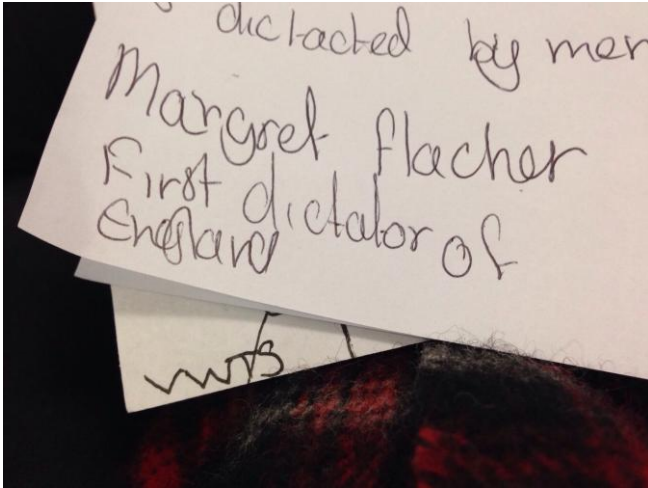 dictacted by mer
Margret flacher
First dictator of
England